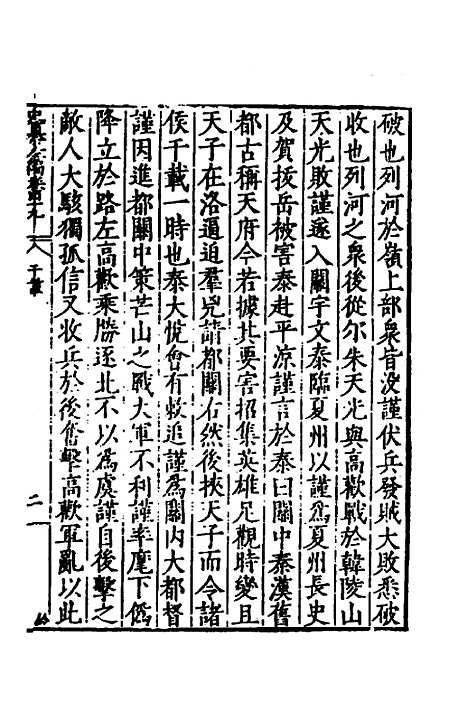 破也列河於嶺上部衆皆沒謹伏兵發賊大敗悉破
收也列河之衆後從尒朱天光與高歡戰於韓陵山
天光敗謹遂入關宇文泰臨夏州以謹爲夏州長史
及賀拔岳被害泰赴平涼謹言於泰曰關中秦漢舊
都古稱天府今若據其要害招集英雄足觀時變且
天子在洛逼迫羣兇請都關右然後挾天子而令諸
侯千載一時也泰大悅會有敕追謹爲關內大都督
謹因進都關中策芒山之戰大軍不利謹率麾下僞
降立於路左高歡乘勝逐北不以爲虞謹自後擊之
敵人大駭獨孤信又收兵於後奮擊高歡軍亂以此
于謹
二